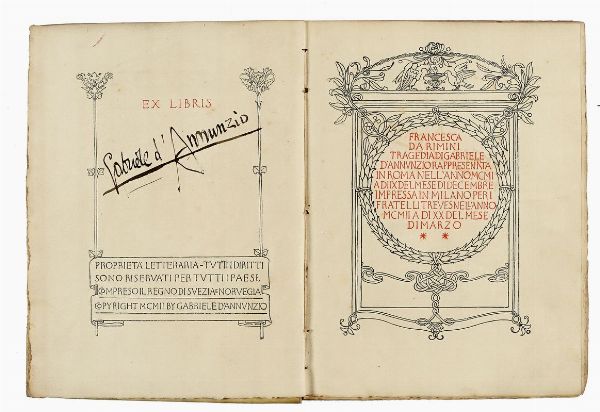 EX LIBRIS
Gabriele d'Annunzio
PROPRIETA LETTERARIA-TVTTI DIRITTI
SONO RISERVATI PER TVTTI I PAESI,
COMPRESO IL REGNO DI SVEZIA E NORVEGIA
COPYRIGHT MCMII BY GABRIELE D'ANNVNZIO
FRANCESCA
DA RIMINI
TRAGEDIA DI GABRIELE
D'ANNVNZIO RAPPRESENTATA
IN ROMA NELL'ANNO MCMI
A DI IX DEL MESE DI DECEMBRE
IMPRESSA IN MILANO PER I
FRATELLI TREVES NELL'ANNO
MCMII A DI XX DEL MESE
DI MARZO